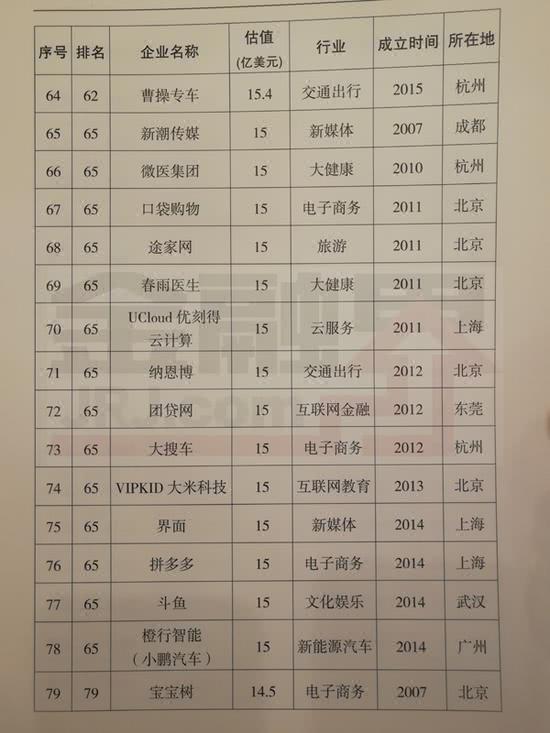 序号 排名 企业名称 估值 (亿美元) 行业 成立时间 所在地
64 62 曹操专车 15.4 交通出行 2015 杭州
65 65 新潮传媒 15 新媒体 2007 成都
66 65 微医集团 15 大健康 2010 杭州
67 65 口袋购物 15 电子商务 2011 北京
68 65 途家网 15 旅游 2011 北京
69 65 春雨医生 15 大健康 2011 北京
70 65 UCloud 优刻得 云计算 15 云服务 2011 上海
71 65 纳恩博 15 交通出行 2012 北京
72 65 团贷网 15 互联网金融 2012 东莞
73 65 大搜车 15 电子商务 2012 杭州
74 65 VIPKID 大米科技 15 互联网教育 2013 北京
75 65 界面 15 新媒体 2014 上海
76 65 拼多多 15 电子商务 2014 上海
77 65 斗鱼 15 文化娱乐 2014 武汉
78 65 橙行智能 (小鹏汽车) 15 新能源汽车 2014 广州
79 79 宝宝树 14.5 电子商务 2007 北京
金融界
JRJ.com